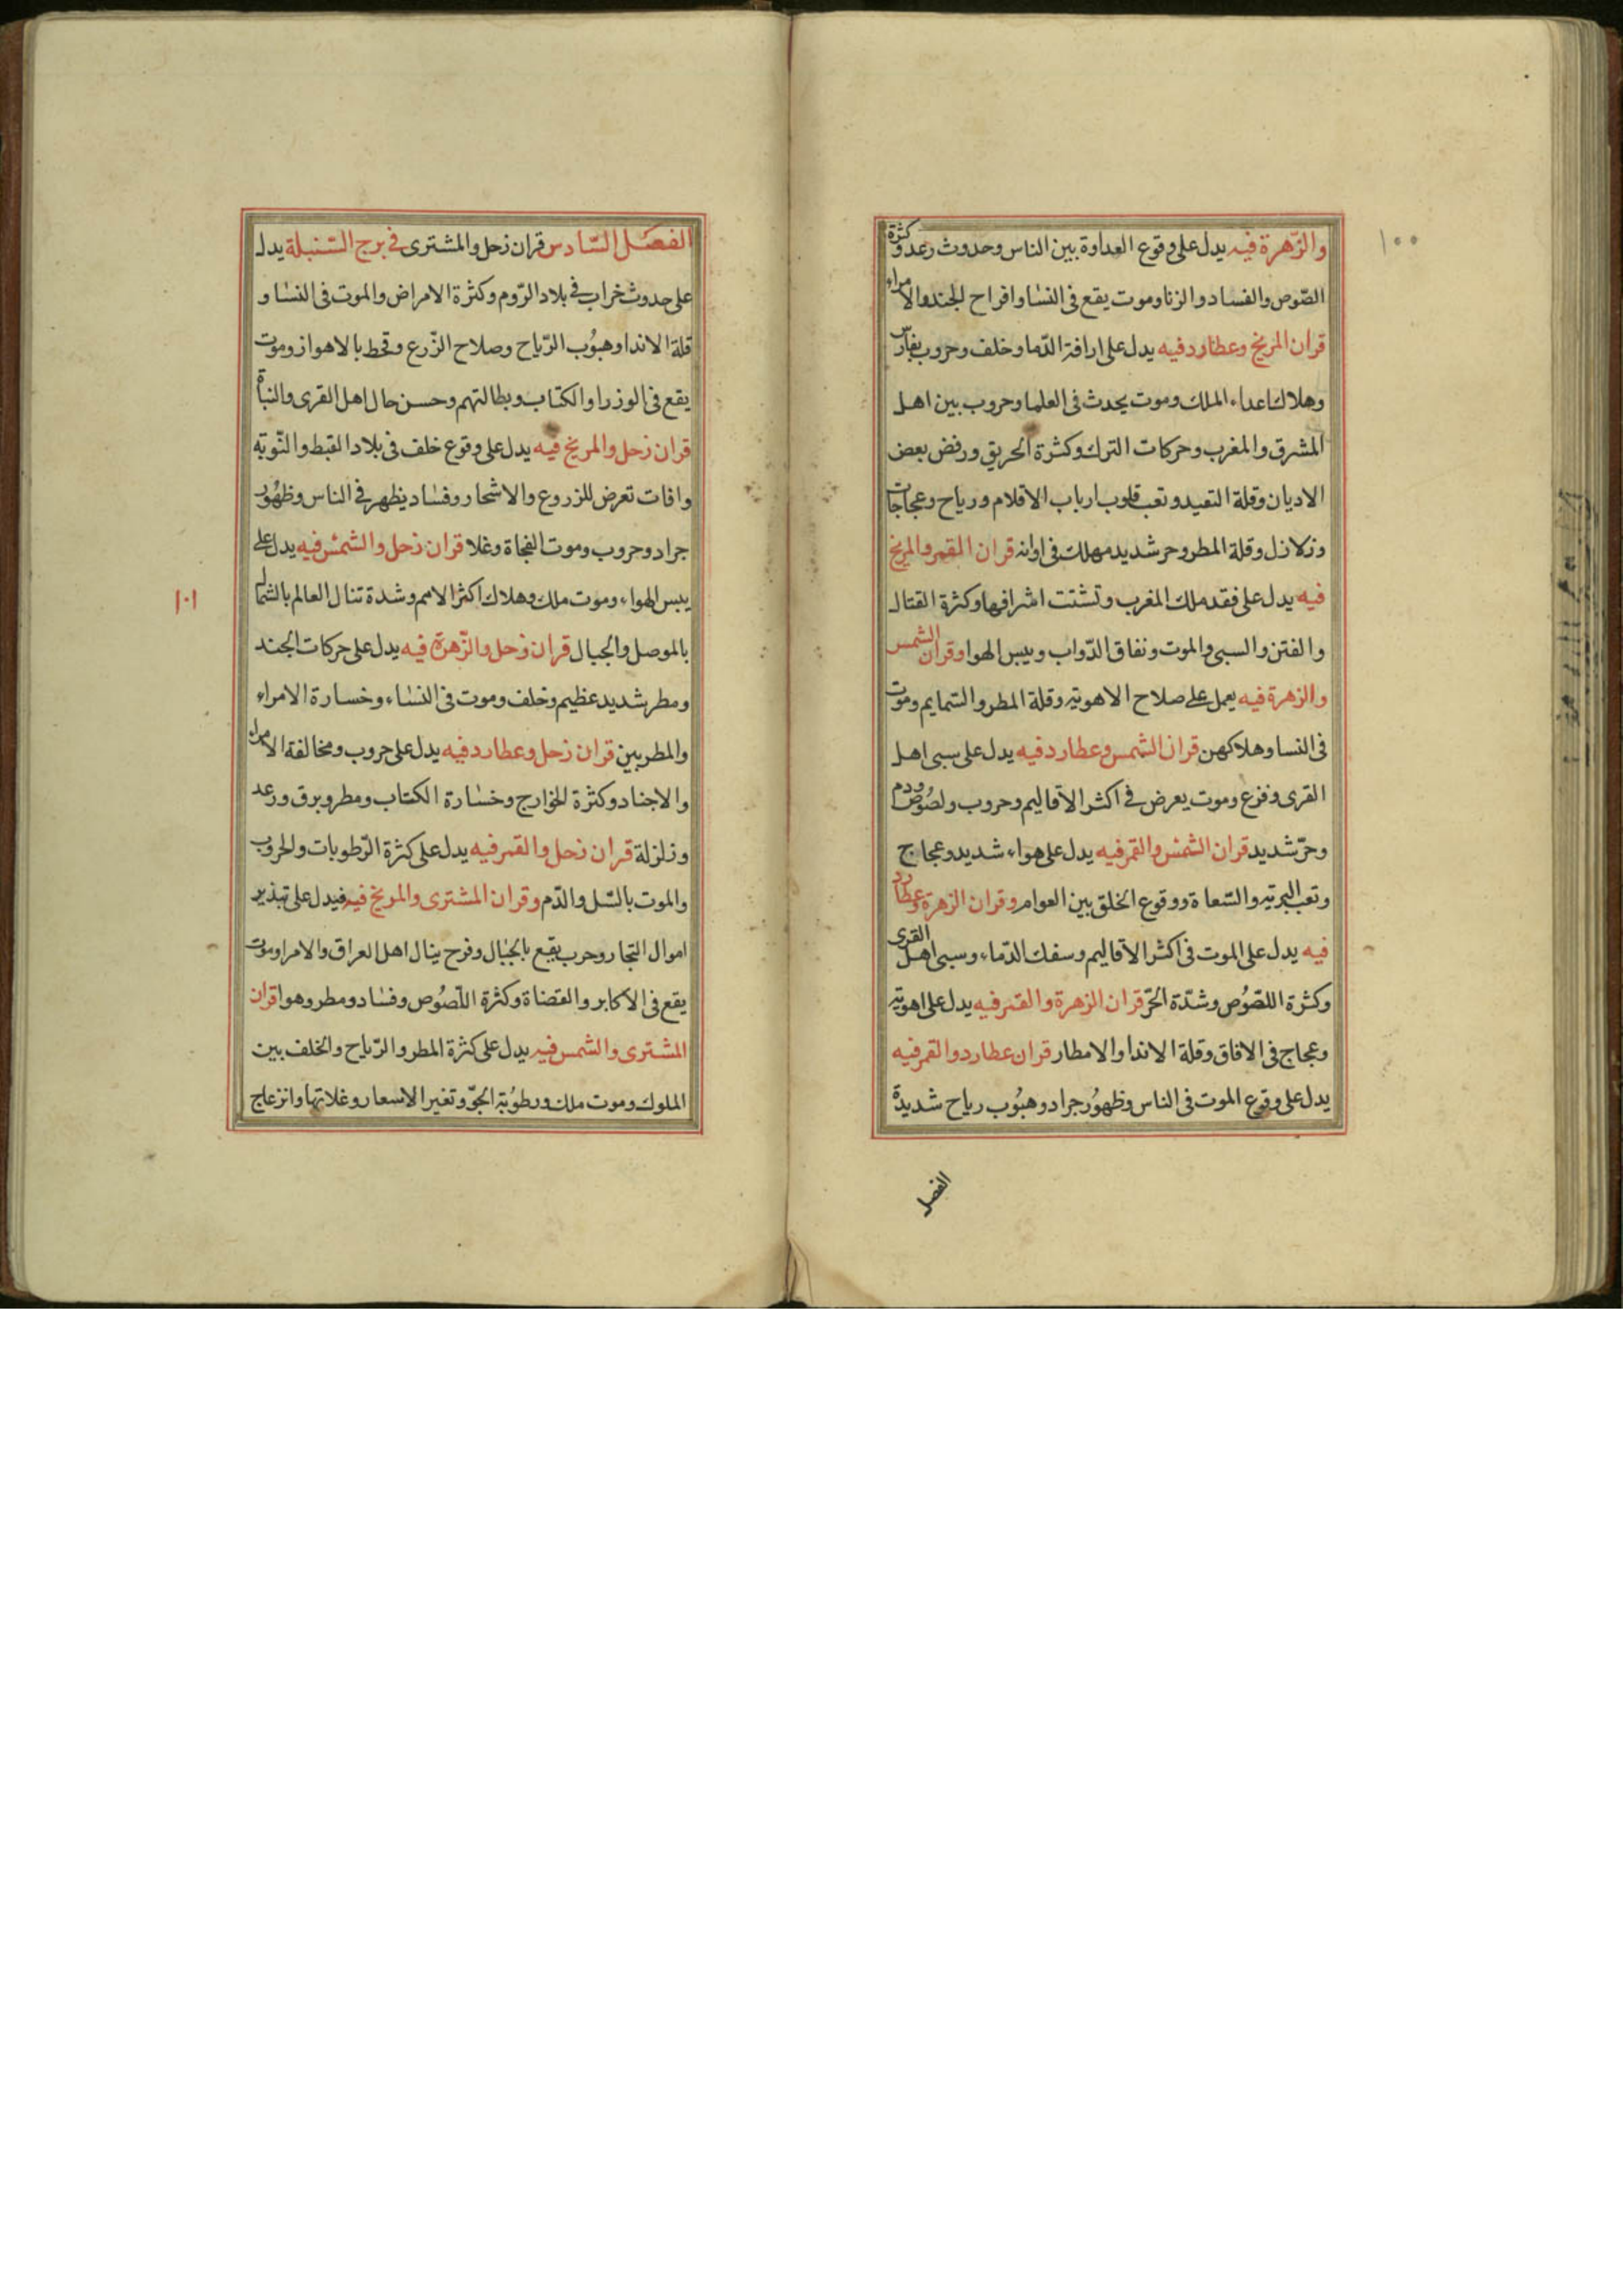 ١٠٠
والزّهرة فيه يدل على وقوع العداوة بين الناس وحدوث رعد وكثرة
الصّوص والفساد والزنا وموت يقع فى النسا وافراح الجند والامراء
قران المريخ وعطارد فيه يدل على ارافة الدّما وخلف وحروب بفارس
وهلاك اعداء الملك وموت يحدث فى العلما وحروب بين اهل
المشرق والمغرب وحركات الترك وكثرة الحريق ورفض بعض
الاديان وقلة التعيد وتعب قلوب ارباب الاقلام ورياح وعجاجات
وزلازل وقلة المطر وحر شديد مهلك فى اوانه قران القمر والمريخ
فيه يدل على فقد ملك المغرب وتشتت اشرافها وكثرة القتال
والفتن والسبى والموت ونفاق الدّواب ويبس الهوا وقران الشمس
والزهرة فيه يعمل على صلاح الاهوية وقلة المطر والسّمايم وموت
فى النسا وهلاكهن قران الشمس وعطارد فيه يدل على سبى اهل
القرى وفزع وموت يعرض فى اكثر الاقاليم وحروب ولصُوص ودم
وحرّ شديد قران الشمس والقمر فيه يدل على هواء شديد وعجاج
وتعب البرية والسّعاة ووقوع الخلق بين العوام وقران الزهرة وعطارد
فيه يدل على الموت فى اكثر الاقاليم وسفك الدّماء وسبى اهل القرى
وكثرة اللصّوُص وشدّة الحرّ قران الزهرة والقمر فيه يدل على اهوية
وعجاج فى الافاق وقلة الاندا والامطار قران عطارد والقمر فيه
يدل على وقوع الموت فى الناس وظهوُر جراد وهبُوب رياح شديدة
الفصل
١٠١
الفصل السّادس قران زحل والمشترى فى برج السّنبلة يدل
على حدوث خراب فى بلاد الرّوم وكثرة الامراض والموت فى النسا و
قلة الاندا وهبوُب الرّياح وصلاح الزّرع وقحط بالاهواز وموت
يقع فى الوزرا والكتاب وبطالتهم وحسن حال اهل القرى والنبأة
قران زحل والمريخ فيه يدل على وقوع خلف فى بلاد القبط والنّوبة
وافات تعرض للزروع والاشجار وفساد يظهر فى الناس وظهُور
جراد وحروب وموت الفجاة وغلا قران زحل والشمس فيه يدل على
يبس الهواء وموت ملك وهلاك اكثر الامم وشدة تنال العالم بالشمال
بالموصل والجبال قران زحل والزّهرة فيه يدل على حركات الجند
ومطر شديد عظيم وخلف وموت فى النساء وخسارة الامراء
والمطر بين قران زحل وعطارد فيه يدل على حروب ومخالفة الامراء
والاجناد وكثرة الخوارج وخسارة الكتاب ومطر وبرق ورعد
وزلزلة قران زحل والقمر فيه يدل على كثرة الرّطوبات والحروب
والموت بالسّل والدّم وقران المشترى والمريخ فيه فيدل على تبذير
اموال التجار وحرب يقع بالجبال وفرح ينال اهل العراق والامرا وموت
يقع فى الاكابر والقضاة وكثرة اللّصوُص وفساد ومطر وهوا قران
المشترى والشمس فيه يدل على كثرة المطر والرّياح والخلف بين
الملوك وموت ملك ورطوُبة الجوّ وتغير الاسعار وغلاتها وانزعاج